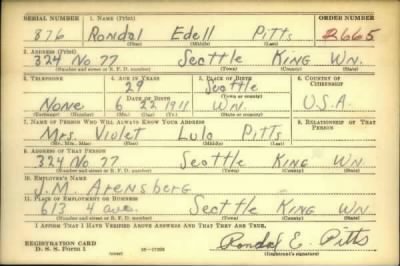 SERIAL NUMBER 1. NAME (Print) ORDER NUMBER
876 Rondal Edell Pitts 2665
(First) (Middle) (Last)
2. ADDRESS (Print)
324 No 77 Seattle KING WN.
(Number and street or R. F. D. number) (Town) (County) (State)
3. TELEPHONE 4. AGE IN YEARS 5. PLACE OF BIRTH 6. COUNTRY OF CITIZENSHIP
29 Seattle
(Town or county)
None 6 22 1911 WN. U.S.A.
(State or country)
7. NAME OF PERSON WHO WILL ALWAYS KNOW YOUR ADDRESS 8. RELATIONSHIP OF THAT PERSON
Mrs. Violet Lulo Pitts
(Mr., Mrs., Miss) (First) (Middle) (Last)
9. ADDRESS OF THAT PERSON
324 No 77 Seattle King Wn
(Number and street or R. F. D. number) (Town) (County) (State)
10. EMPLOYER'S NAME
J.M. Arensberg
11. PLACE OF EMPLOYMENT OR BUSINESS
613 4 ave. Seattle King WN
(Number and street or R. F. D. number) (Town) (County) (State)
I AFFIRM THAT I HAVE VERIFIED ABOVE ANSWERS AND THAT THEY ARE TRUE.
REGISTRATION CARD
D. S. S. Form 1 Rondal E. Pitts
(Registrant's signature)